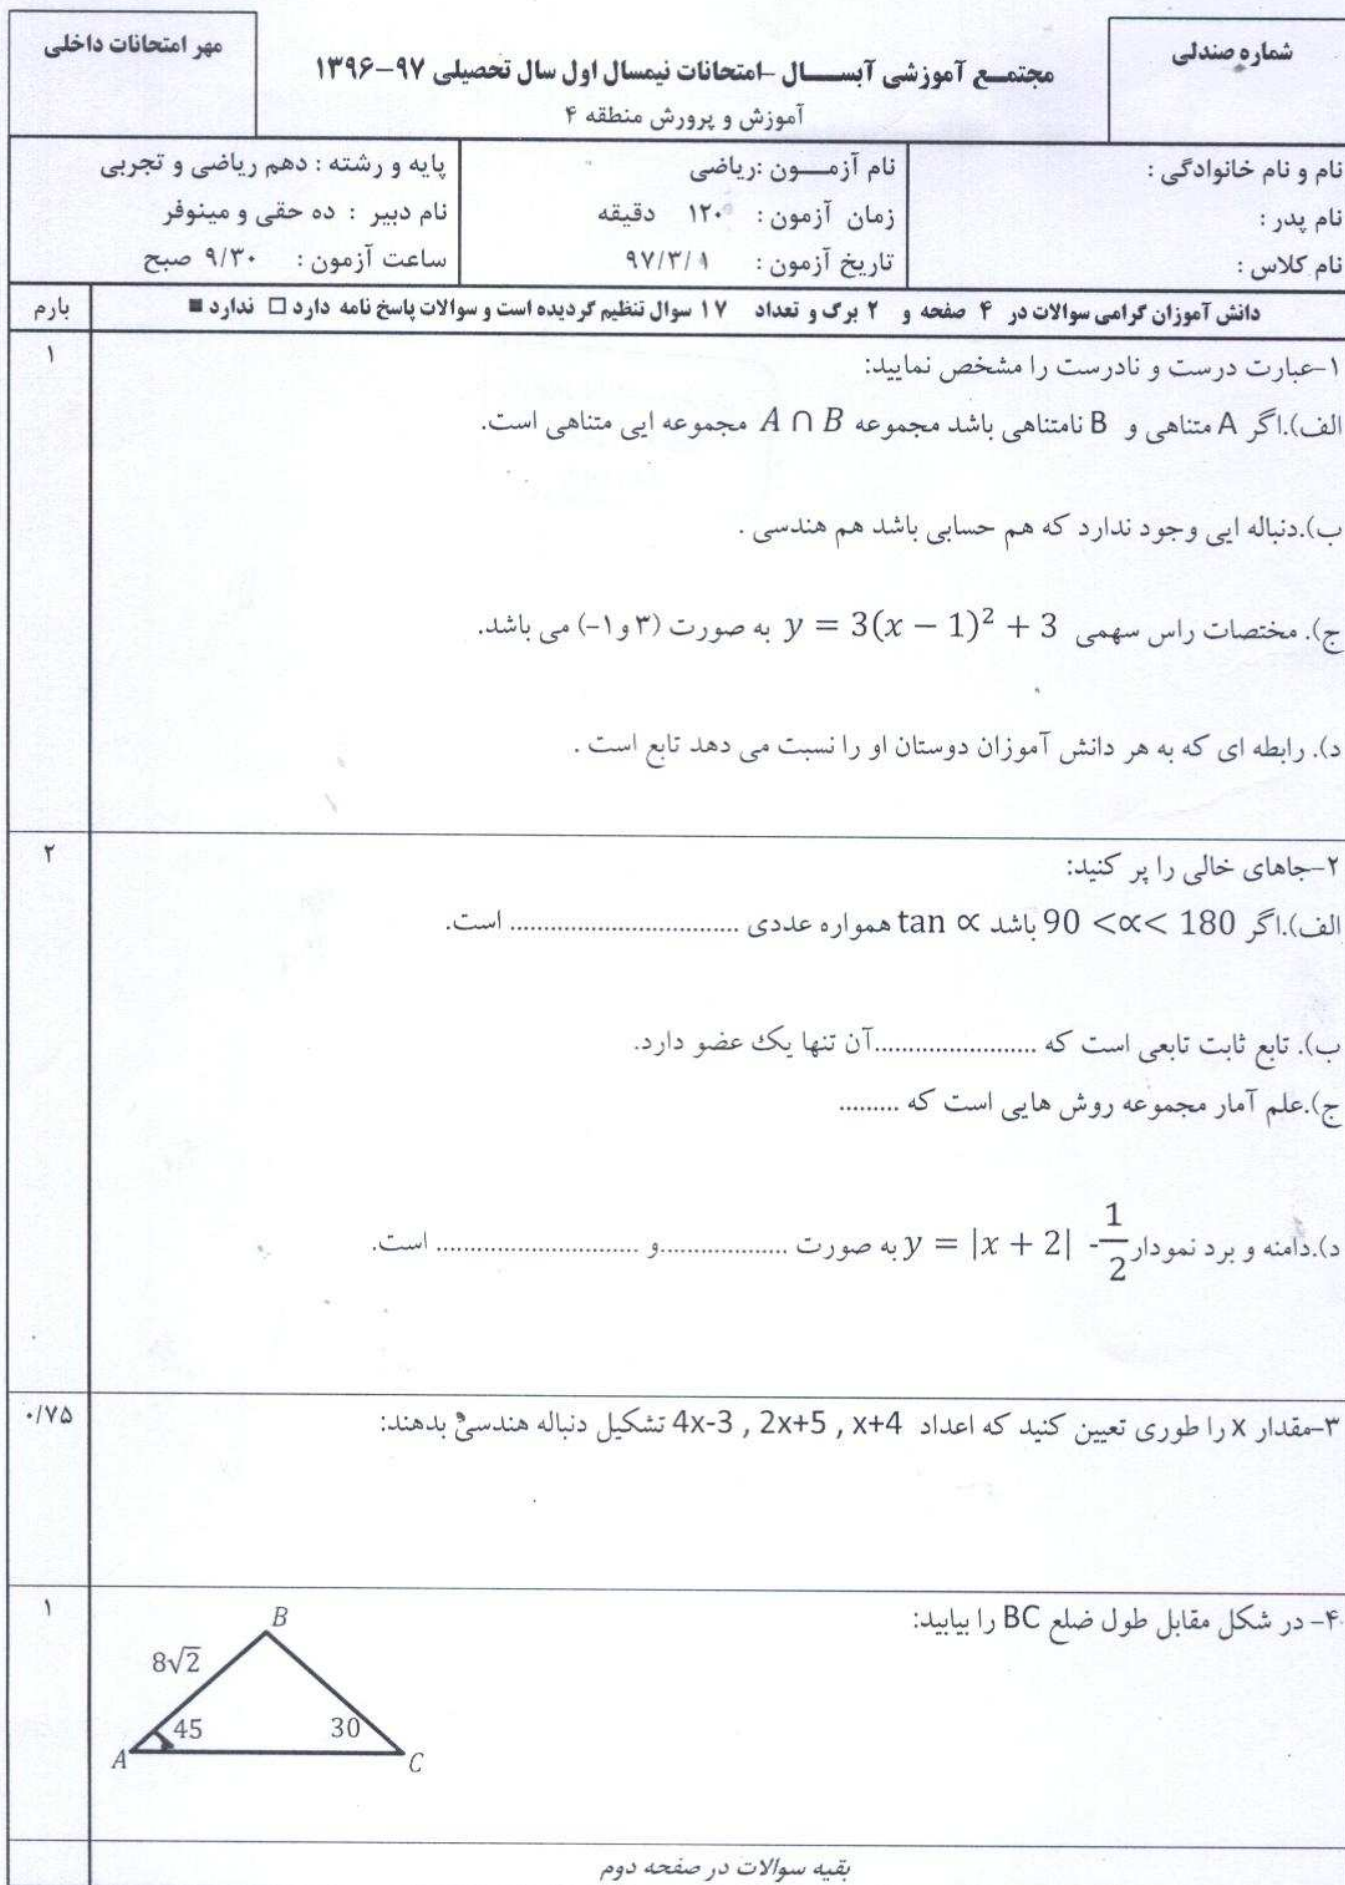 شماره صندلی
مجتمع آموزشی آبسال -امتحانات نیمسال اول سال تحصیلی ۹۷-۱۳۹۶
آموزش و پرورش منطقه ۴
مهر امتحانات داخلی
نام و نام خانوادگی :
نام پدر :
نام کلاس :
نام آزمون :ریاضی
زمان آزمون : ۱۲۰ دقیقه
تاریخ آزمون : ۹۷/۳/۱
پایه و رشته : دهم ریاضی و تجربی
نام دبیر : ده حقی و مینوفر
ساعت آزمون : ۹/۳۰ صبح
دانش آموزان گرامی سوالات در ۴ صفحه و ۲ برگ و تعداد ۱۷ سوال تنظیم گردیده است و سوالات پاسخ نامه دارد □ ندارد ■
بارم
۱-عبارت درست و نادرست را مشخص نمایید:
۱
الف).اگر A متناهی و B نامتناهی باشد مجموعه A ∩ B مجموعه ایی متناهی است.
ب).دنباله ایی وجود ندارد که هم حسابی باشد هم هندسی .
ج). مختصات راس سهمی y = 3(x − 1)² + 3 به صورت (۳ و۱-) می باشد.
د). رابطه ای که به هر دانش آموزان دوستان او را نسبت می دهد تابع است .
۲-جاهای خالی را پر کنید:
۲
الف).اگر 90 <∝< 180 باشد tan ∝ همواره عددی .................................. است.
ب). تابع ثابت تابعی است که ........................آن تنها یک عضو دارد.
ج).علم آمار مجموعه روش هایی است که .........
د).دامنه و برد نمودار y = |x + 2| -1/2 به صورت ...................و .............................. است.
۳-مقدار x را طوری تعیین کنید که اعداد 4x-3 , 2x+5 , x+4 تشکیل دنباله هندسی بدهند:
۰/۷۵
۴- در شکل مقابل طول ضلع BC را بیابید:
۱
B
8√2
45
30
A
C
بقیه سوالات در صفحه دوم